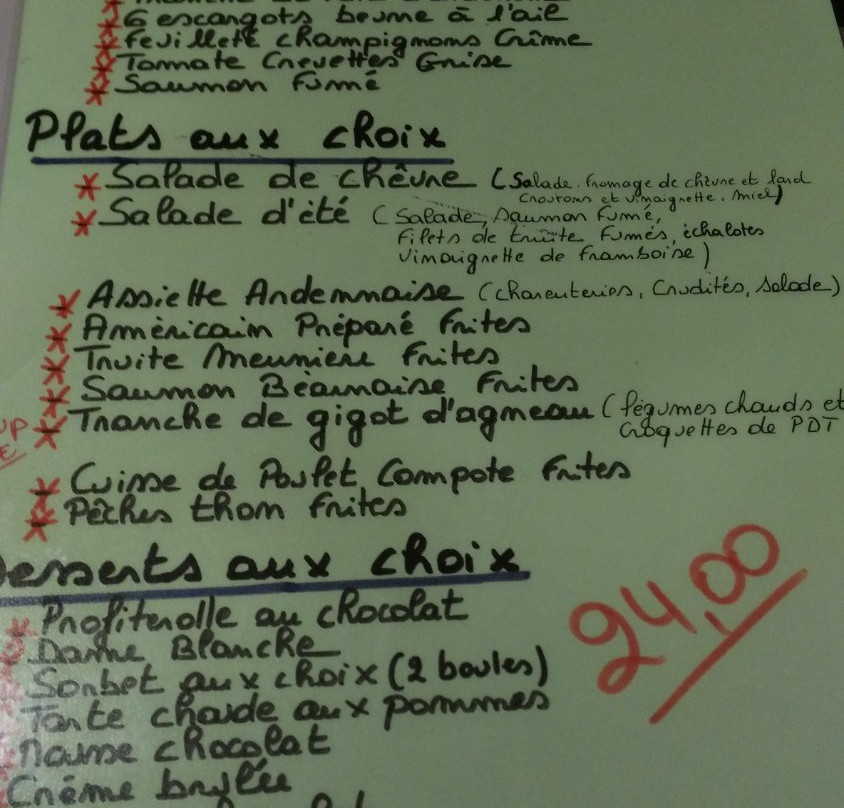 6 escargots beurre à l'ail
Feuilleté champignons Crème
Tomate Crevettes Grise
Saumon Fumé
Plats aux choix
Salade de chèvre (Salade, fromage de chèvre et lard
croutons et vinaigrette, miel)
Salade d'été (Salade, Saumon Fumé,
Filets de truite Fumés, échalotes
Vinaigrette de framboise)
Assiette Ardennaise (Charcuteries, Crudités, Salade)
Américain Préparé frites
Truite Meunière Frites
Saumon Béarnaise Frites
Tranche de gigot d'agneau (légumes chauds et
croquettes de PDT
Cuisse de Poulet Compote Frites
Pêches thon frites
Desserts aux choix
24,00
Profiterolle au chocolat
Dame Blanche
Sorbet aux choix (2 boules)
Tarte chaude aux pommes
Mousse chocolat
Crème brûlée